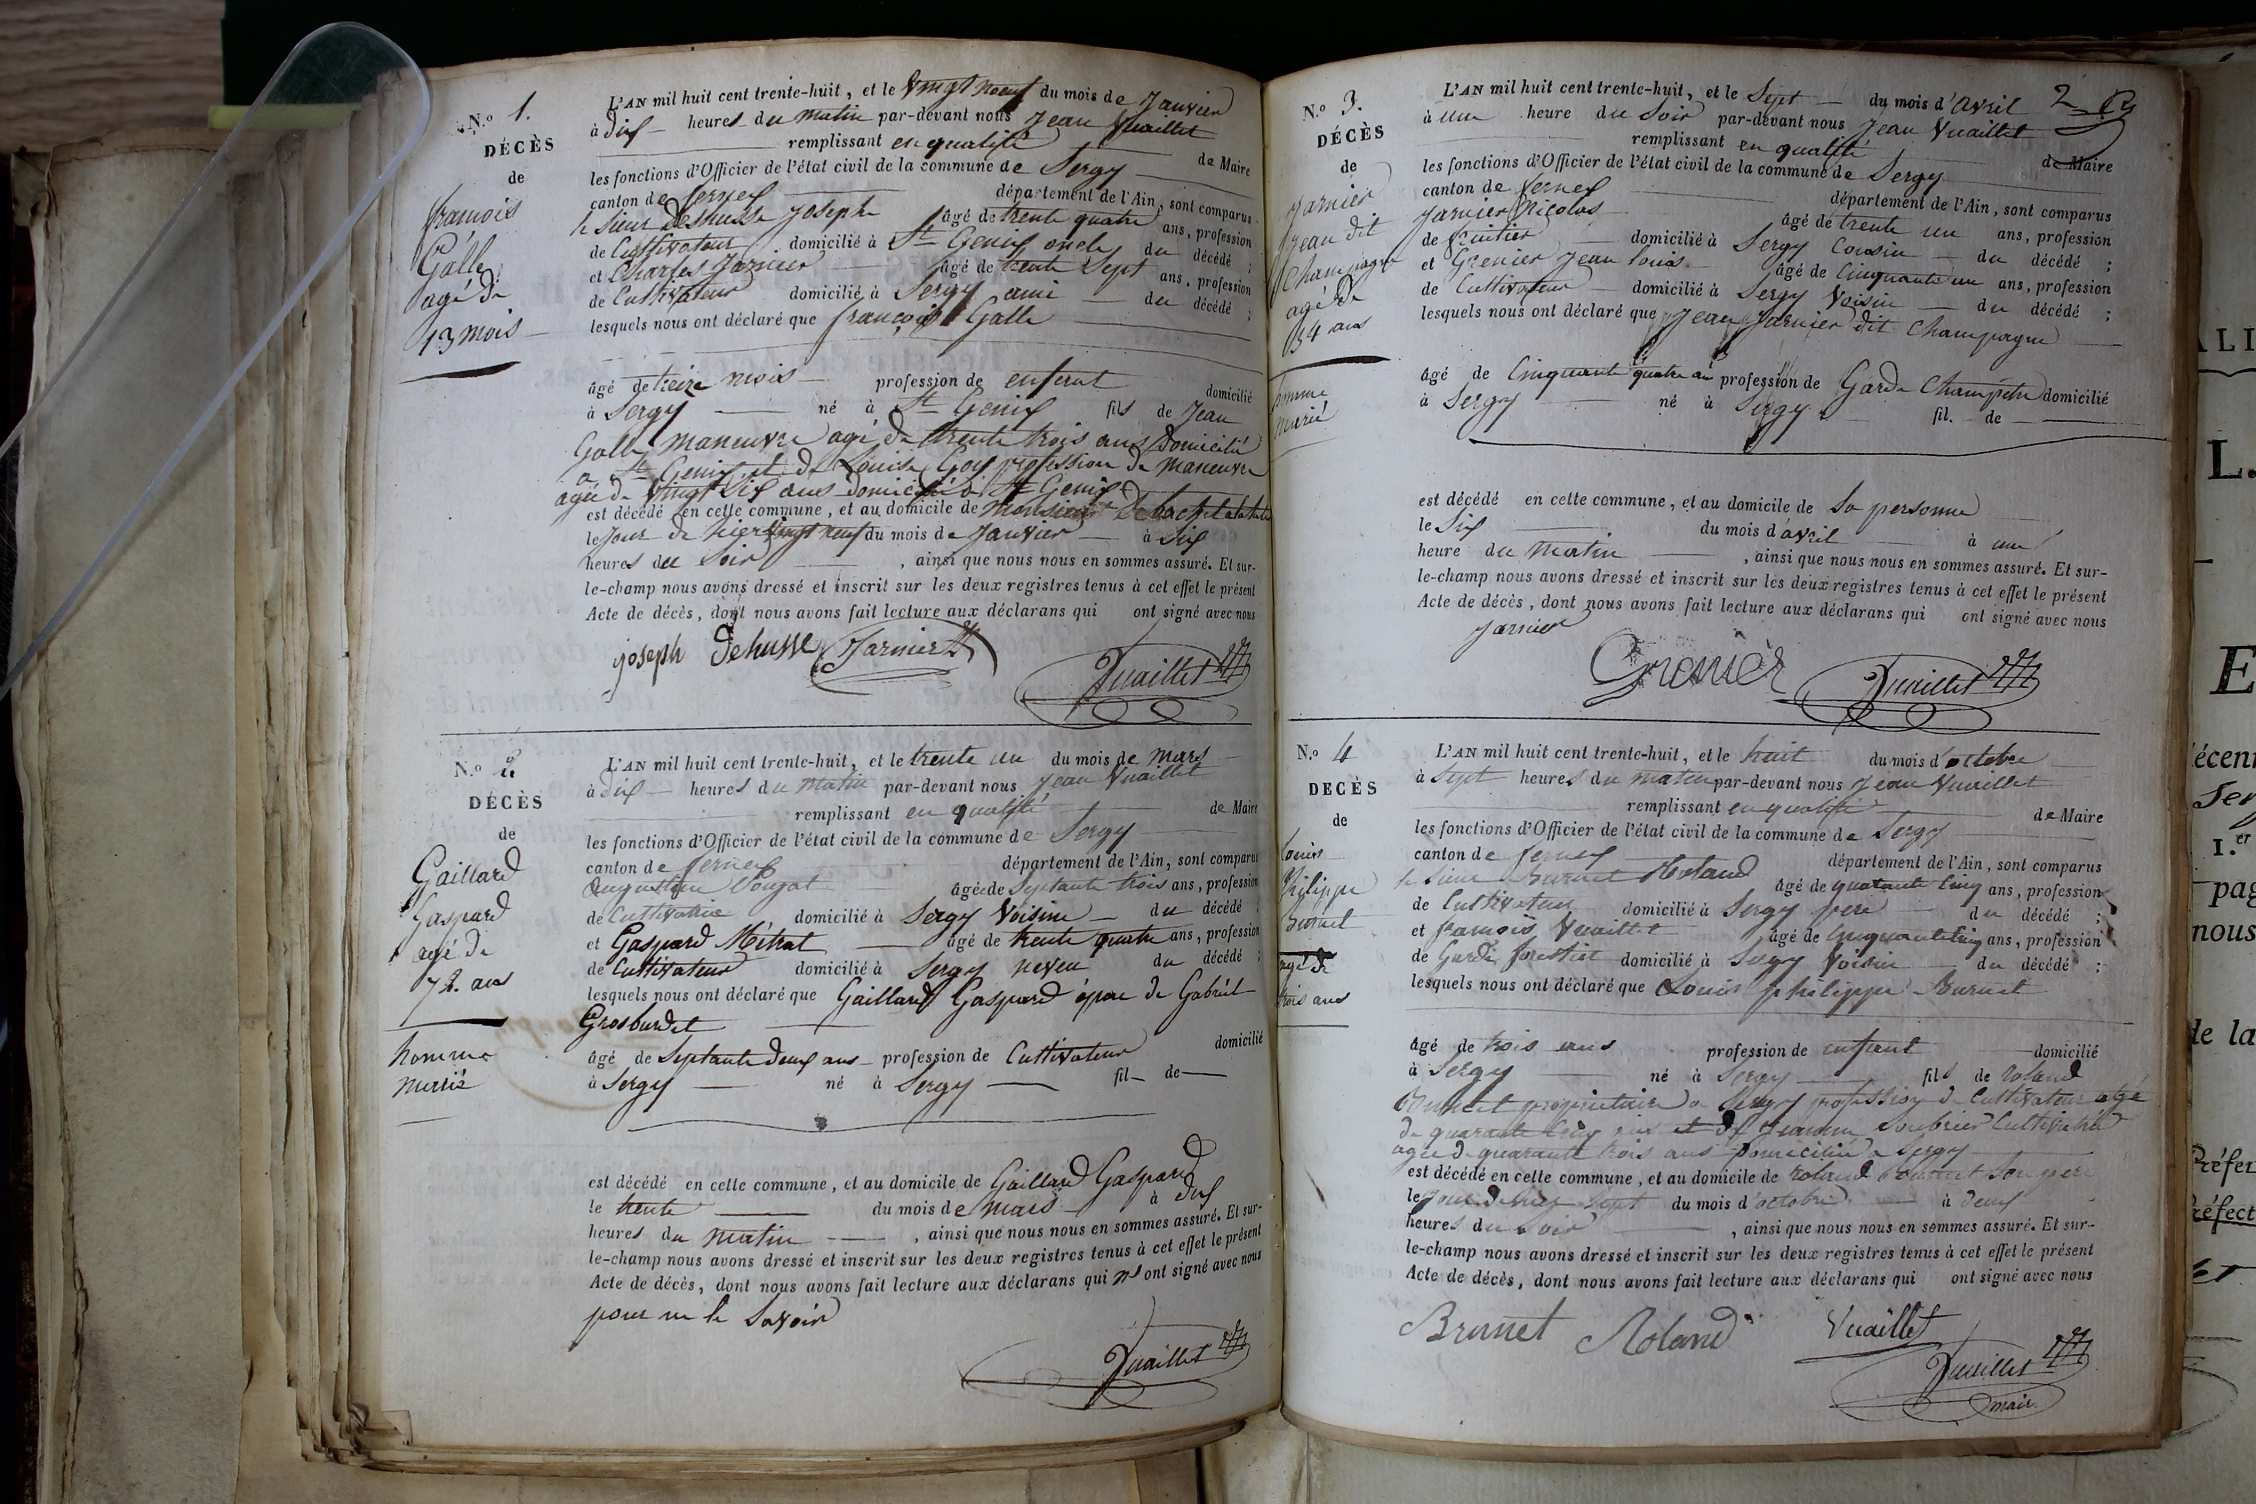 N.º 1.
DÉCÈS
de
francois
Galle
agé de
13 mois
L'AN mil huit cent trente-huit, et le vingt neuf du mois de Janvier
à dix heures du matin par-devant nous Jean Vuaillet
remplissant en qualité de Maire
les fonctions d'Officier de l'état civil de la commune de Sergy
canton de ferney département de l'Ain, sont comparus
le sieur Dehusse Joseph âgé de trente quatre ans, profession
de Cultivateur domicilié à St Genix oncle du décédé ;
et Charles Jarnier âgé de trente Sept ans, profession
de Cultivateur domicilié à Sergy ami du décédé ;
lesquels nous ont déclaré que françois Galle
âgé de treize mois profession de enfant domicilié
à Sergy né à St Genix fils de Jean
Galle maneuvre agé de trente trois ans domicilié
a St Genix et de Louise Goy profession de maneuvre
agée de vingt six ans domicilié à St Genix
est décédé en cette commune, et au domicile de monsieur
le jour de hier vingt neuf du mois de Janvier à Six
heures du Soir , ainsi que nous nous en sommes assuré. Et sur-
le-champ nous avons dressé et inscrit sur les deux registres tenus à cet effet le présent
Acte de décès, dont nous avons fait lecture aux déclarans qui ont signé avec nous
joseph Dehusse Jarnier
Vuaillet
N.º 2.
DÉCÈS
de
Gaillard
Gaspard
agé de
72. ans
homme
marié
L'AN mil huit cent trente-huit, et le trente un du mois de mars
à dix heures du matin par-devant nous Jean Vuaillet
remplissant en qualité de Maire
les fonctions d'Officier de l'état civil de la commune de Sergy
canton de ferney département de l'Ain, sont comparus
Augustine Pougat âgée de Septante trois ans, profession
de Cultivatrice domicilié à Sergy Voisine du décédé ;
et Gaspard Métral âgé de trente quatre ans, profession
de Cultivateur domicilié à Sergy neveu du décédé ;
lesquels nous ont déclaré que Gaillard Gaspard époux de Gabriel
Grosburdet
âgé de Septante deux ans profession de Cultivateur domicilié
à Sergy né à Sergy fil de
est décédé en cette commune, et au domicile de Gaillard Gaspard
le trente du mois de mars à dix
heures du matin , ainsi que nous nous en sommes assuré. Et sur-
le-champ nous avons dressé et inscrit sur les deux registres tenus à cet effet le présent
Acte de décès, dont nous avons fait lecture aux déclarans qui n' ont signé avec nous
pour ne le Savoir
Vuaillet
2
N.º 3.
DÉCÈS
de
Jarnier
Jean dit
Champagne
agé de
54 ans
homme
marié
L'AN mil huit cent trente-huit, et le Sept du mois d'avril
à une heure du Soir par-devant nous Jean Vuaillet
remplissant en qualité de Maire
les fonctions d'Officier de l'état civil de la commune de Sergy
canton de ferney département de l'Ain, sont comparus
Jarnier Nicolas âgé de trente un ans, profession
de domicilié à Sergy Cousin du décédé ;
et Grenier Jean Louis âgé de Cinquante un ans, profession
de Cultivateur domicilié à Sergy Voisin du décédé ;
lesquels nous ont déclaré que Jean Jarnier dit Champagne
âgé de Cinquante quatre an profession de Garde Champetre domicilié
à Sergy né à Sergy fil. de
est décédé en cette commune, et au domicile de Sa personne
le Six du mois d'avril à une
heure du matin , ainsi que nous nous en sommes assuré. Et sur-
le-champ nous avons dressé et inscrit sur les deux registres tenus à cet effet le présent
Acte de décès, dont nous avons fait lecture aux déclarans qui ont signé avec nous
Jarnier
Grenier
Vuaillet
N.º 4
DÉCÈS
de
Louis
Philippe
Burnet
agé de
trois ans
L'AN mil huit cent trente-huit, et le huit du mois d'octobre
à Sept heures du matin par-devant nous Jean Vuaillet
remplissant en qualité de Maire
les fonctions d'Officier de l'état civil de la commune de Sergy
canton de ferney département de l'Ain, sont comparus
le Sieur Burnet Roland âgé de quarante Cinq ans, profession
de Cultivateur domicilié à Sergy pere du décédé ;
et francois Vuaillet âgé de Cinquante Cinq ans, profession
de Garde forestier domicilié à Sergy Voisin du décédé ;
lesquels nous ont déclaré que Louis philippe Burnet
âgé de trois ans profession de enfant domicilié
à Sergy né à Sergy fils de roland
Burnet propriétaire a Sergy profession de Cultivateur agé
de quarante Cinq ans et de Jeanne Soubrier Cultivatrice
agée de quarante trois ans domiciliée a Sergy
est décédé en cette commune, et au domicile de roland Burnet Son pere
le jour de hier Sept du mois d'octobre à deux
heures du Soir , ainsi que nous nous en sommes assuré. Et sur-
le-champ nous avons dressé et inscrit sur les deux registres tenus à cet effet le présent
Acte de décès, dont nous avons fait lecture aux déclarans qui ont signé avec nous
Brunet Roland Vuaillet
Vuaillet
maire